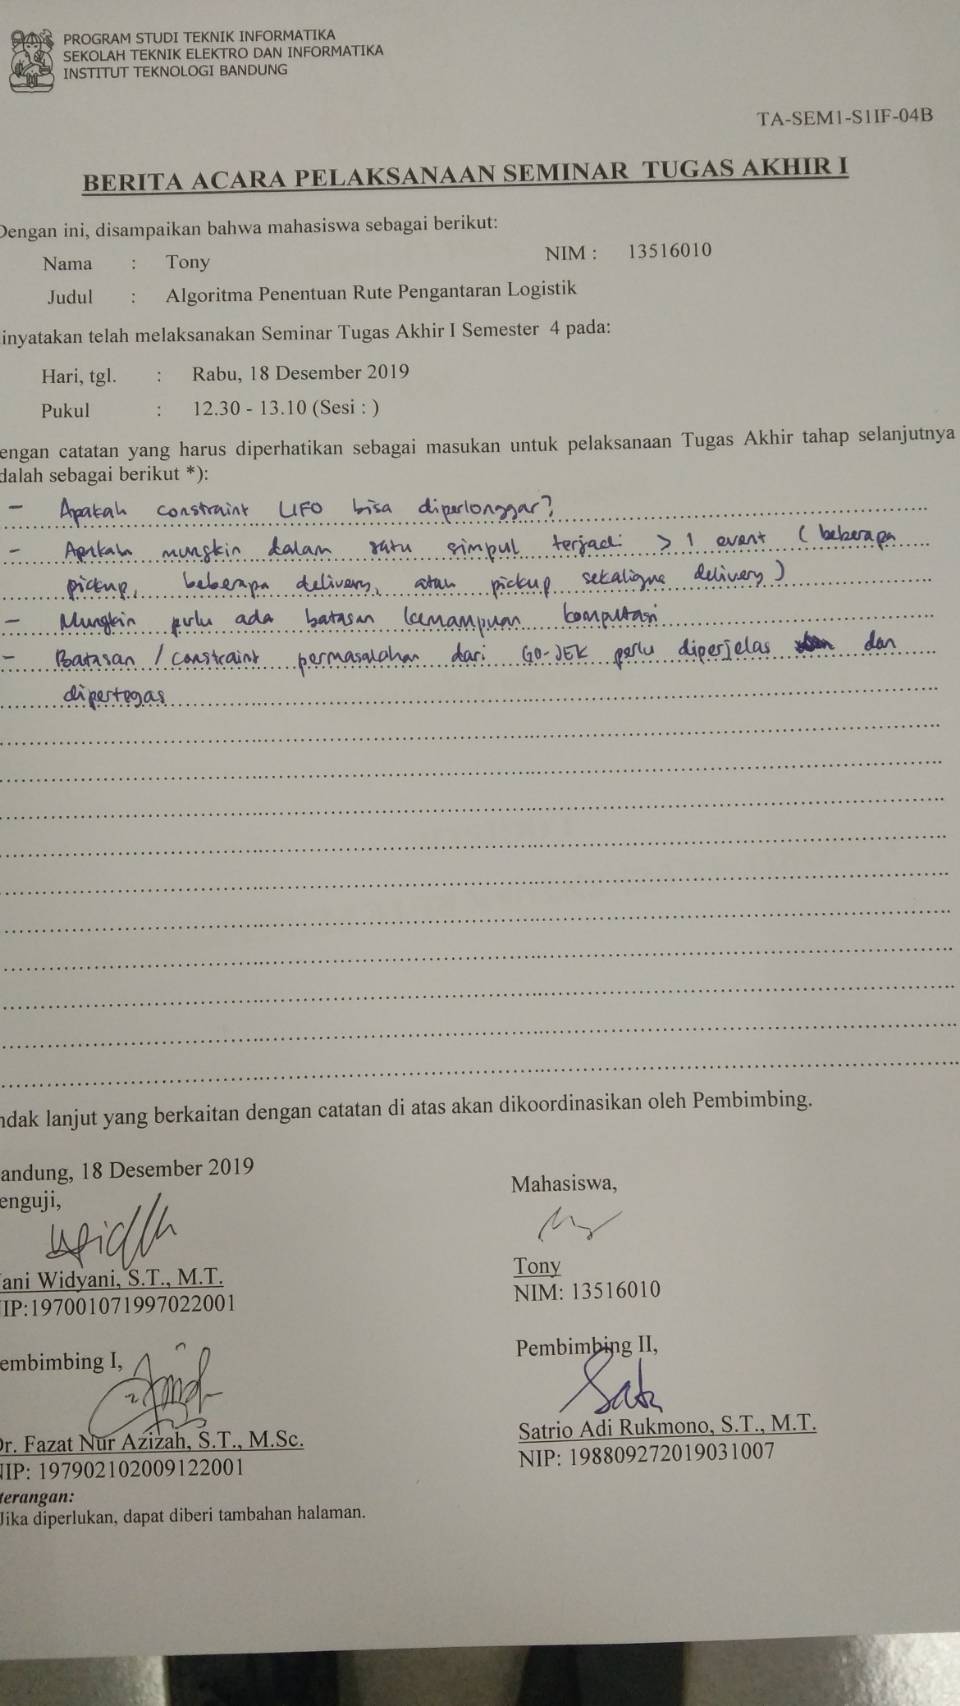 PROGRAM STUDI TEKNIK INFORMATIKA
SEKOLAH TEKNIK ELEKTRO DAN INFORMATIKA
INSTITUT TEKNOLOGI BANDUNG
TA-SEM1-S1IF-04B
BERITA ACARA PELAKSANAAN SEMINAR TUGAS AKHIR I
Dengan ini, disampaikan bahwa mahasiswa sebagai berikut:
Nama : Tony NIM : 13516010
Judul : Algoritma Penentuan Rute Pengantaran Logistik
inyatakan telah melaksanakan Seminar Tugas Akhir I Semester 4 pada:
Hari, tgl. : Rabu, 18 Desember 2019
Pukul : 12.30 - 13.10 (Sesi : )
engan catatan yang harus diperhatikan sebagai masukan untuk pelaksanaan Tugas Akhir tahap selanjutnya
dalah sebagai berikut *):
- Apakah constraint LIFO bisa diperlonggar?
- Apakah mungkin dalam satu simpul terjadi > 1 event (beberapa
pickup, beberapa delivery, atau pickup sekaligus delivery)
- Mungkin perlu ada batasan kemampuan komputasi
- Batasan / constraint permasalahan dari GO-JEK perlu diperjelas dan
dipertegas
ndak lanjut yang berkaitan dengan catatan di atas akan dikoordinasikan oleh Pembimbing.
andung, 18 Desember 2019
enguji, Mahasiswa,
ani Widyani, S.T., M.T. Tony
IP:197001071997022001 NIM: 13516010
embimbing I, Pembimbing II,
Dr. Fazat Nur Azizah, S.T., M.Sc. Satrio Adi Rukmono, S.T., M.T.
NIP: 197902102009122001 NIP: 198809272019031007
terangan:
Jika diperlukan, dapat diberi tambahan halaman.